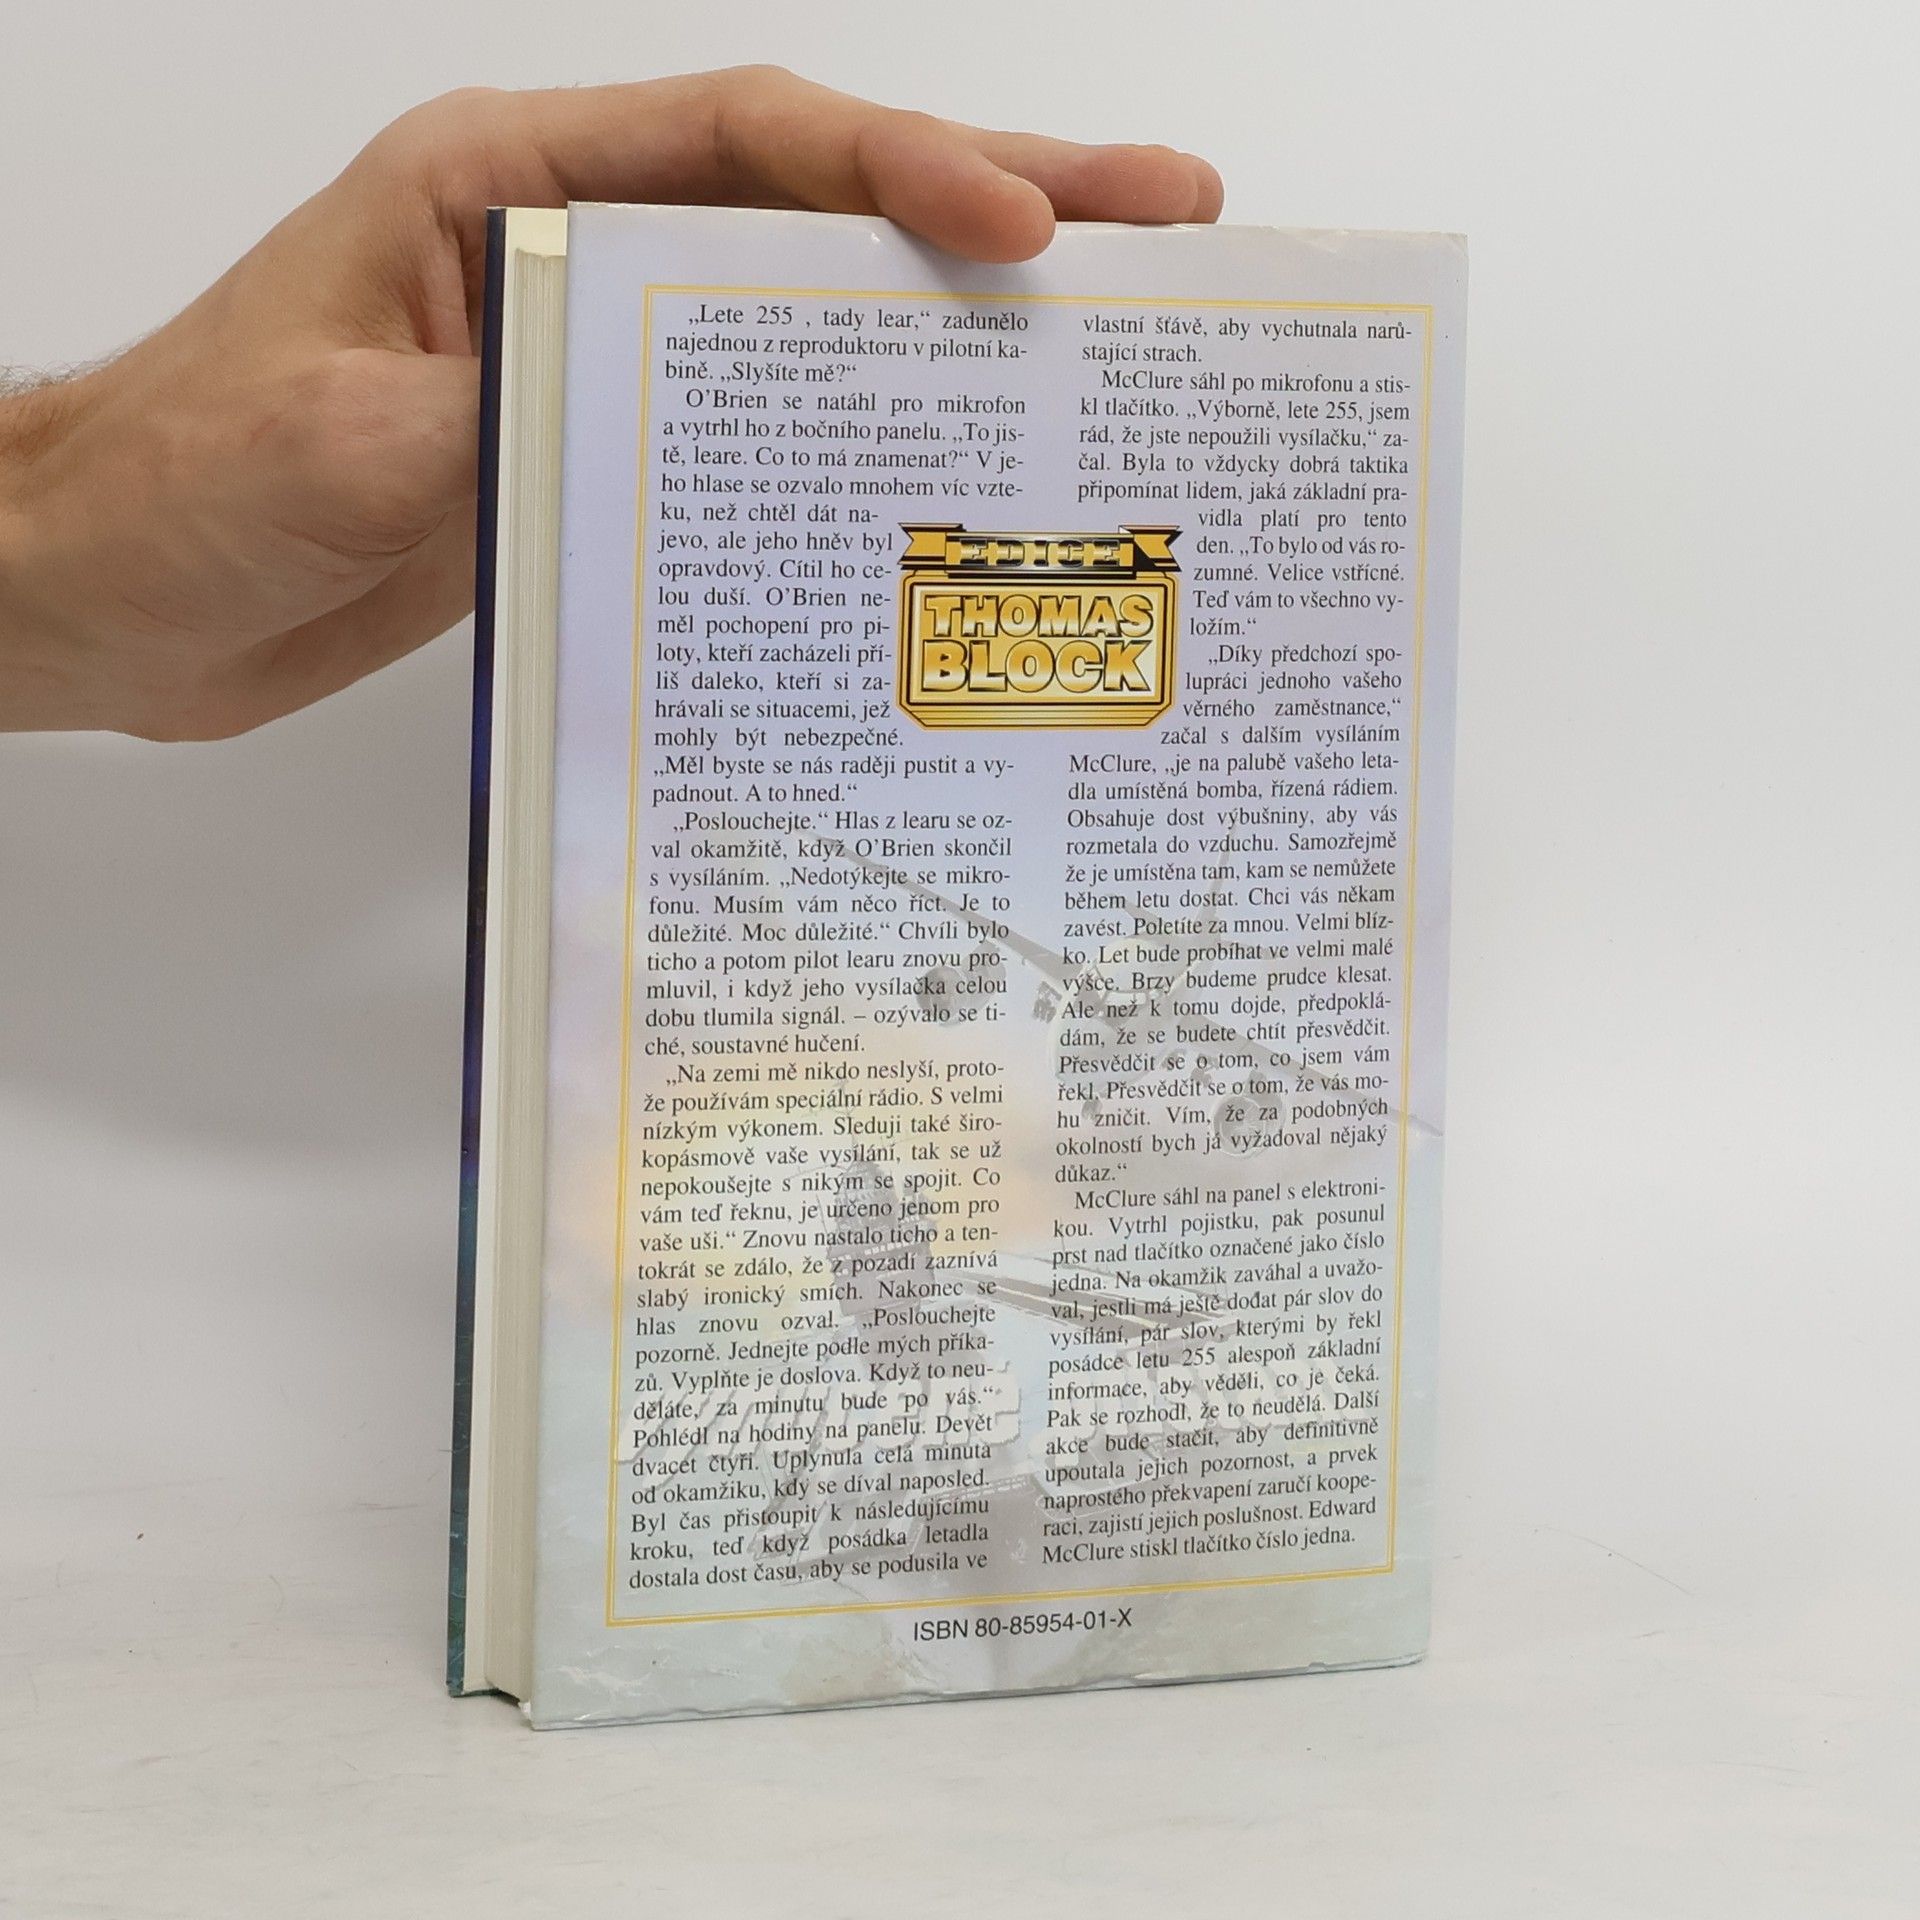 „Lete 255 , tady lear,“ zadunělo
najednou z reproduktoru v pilotní ka-
bině. „Slyšíte mě?“
O’Brien se natáhl pro mikrofon
a vytrhl ho z bočního panelu. „To jis-
tě, leare. Co to má znamenat?“ V je-
ho hlase se ozvalo mnohem víc vzte-
ku, než chtěl dát na-
jevo, ale jeho hněv byl
opravdový. Cítil ho ce-
lou duší. O’Brien ne-
měl pochopení pro pi-
loty, kteří zacházeli pří-
liš daleko, kteří si za-
hrávali se situacemi, jež
mohly být nebezpečné.
„Měl byste se nás raději pustit a vy-
padnout. A to hned.“
„Poslouchejte.“ Hlas z learu se oz-
val okamžitě, když O’Brien skončil
s vysíláním. „Nedotýkejte se mikro-
fonu. Musím vám něco říct. Je to
důležité. Moc důležité.“ Chvíli bylo
ticho a potom pilot learu znovu pro-
mluvil, i když jeho vysílačka celou
dobu tlumila signál. – ozývalo se ti-
ché, soustavné hučení.
„Na zemi mě nikdo neslyší, proto-
že používám speciální rádio. S velmi
nízkým výkonem. Sleduji také širo-
kopásmově vaše vysílání, tak se už
nepokoušejte s nikým se spojit. Co
vám teď řeknu, je určeno jenom pro
vaše uši.“ Znovu nastalo ticho a ten-
tokrát se zdálo, že z pozadí zaznívá
slabý ironický smích. Nakonec se
hlas znovu ozval. „Poslouchejte
pozorně. Jednejte podle mých příka-
zů. Vyplňte je doslova. Když to neu-
děláte, za minutu bude po vás.“
Pohlédl na hodiny na panelu. Devět
dvacet čtyři. Uplynula celá minuta
od okamžiku, kdy se díval naposled.
Byl čas přistoupit k následujícímu
kroku, teď když posádka letadla
dostala dost času, aby se podusila ve
vlastní šťávě, aby vychutnala narů-
stající strach.
McClure sáhl po mikrofonu a stis-
kl tlačítko. „Výborně, lete 255, jsem
rád, že jste nepoužili vysílačku,“ za-
čal. Byla to vždycky dobrá taktika
připomínat lidem, jaká základní pra-
vidla platí pro tento
den. „To bylo od vás ro-
zumné. Velice vstřícné.
Teď vám to všechno vy-
ložím.“
„Díky předchozí spo-
lupráci jednoho vašeho
věrného zaměstnance,“
začal s dalším vysíláním
McClure, „je na palubě vašeho leta-
dla umístěná bomba, řízená rádiem.
Obsahuje dost výbušniny, aby vás
rozmetala do vzduchu. Samozřejmě
že je umístěna tam, kam se nemůžete
během letu dostat. Chci vás někam
zavést. Poletíte za mnou. Velmi blíz-
ko. Let bude probíhat ve velmi malé
výšce. Brzy budeme prudce klesat.
Ale než k tomu dojde, předpoklá-
dám, že se budete chtít přesvědčit.
Přesvědčit se o tom, co jsem vám
řekl. Přesvědčit se o tom, že vás mo-
hu zničit. Vím, že za podobných
okolností bych já vyžadoval nějaký
důkaz.“
McClure sáhl na panel s elektroni-
kou. Vytrhl pojistku, pak posunul
prst nad tlačítko označené jako číslo
jedna. Na okamžik zaváhal a uvažo-
val, jestli má ještě dodat pár slov do
vysílání, pár slov, kterými by řekl
posádce letu 255 alespoň základní
informace, aby věděli, co je čeká.
Pak se rozhodl, že to neudělá. Další
akce bude stačit, aby definitivně
upoutala jejich pozornost, a prvek
naprostého překvapení zaručí koope-
raci, zajistí jejich poslušnost. Edward
McClure stiskl tlačítko číslo jedna.
EDICE
THOMAS
BLOCK
ISBN 80-85954-01-X